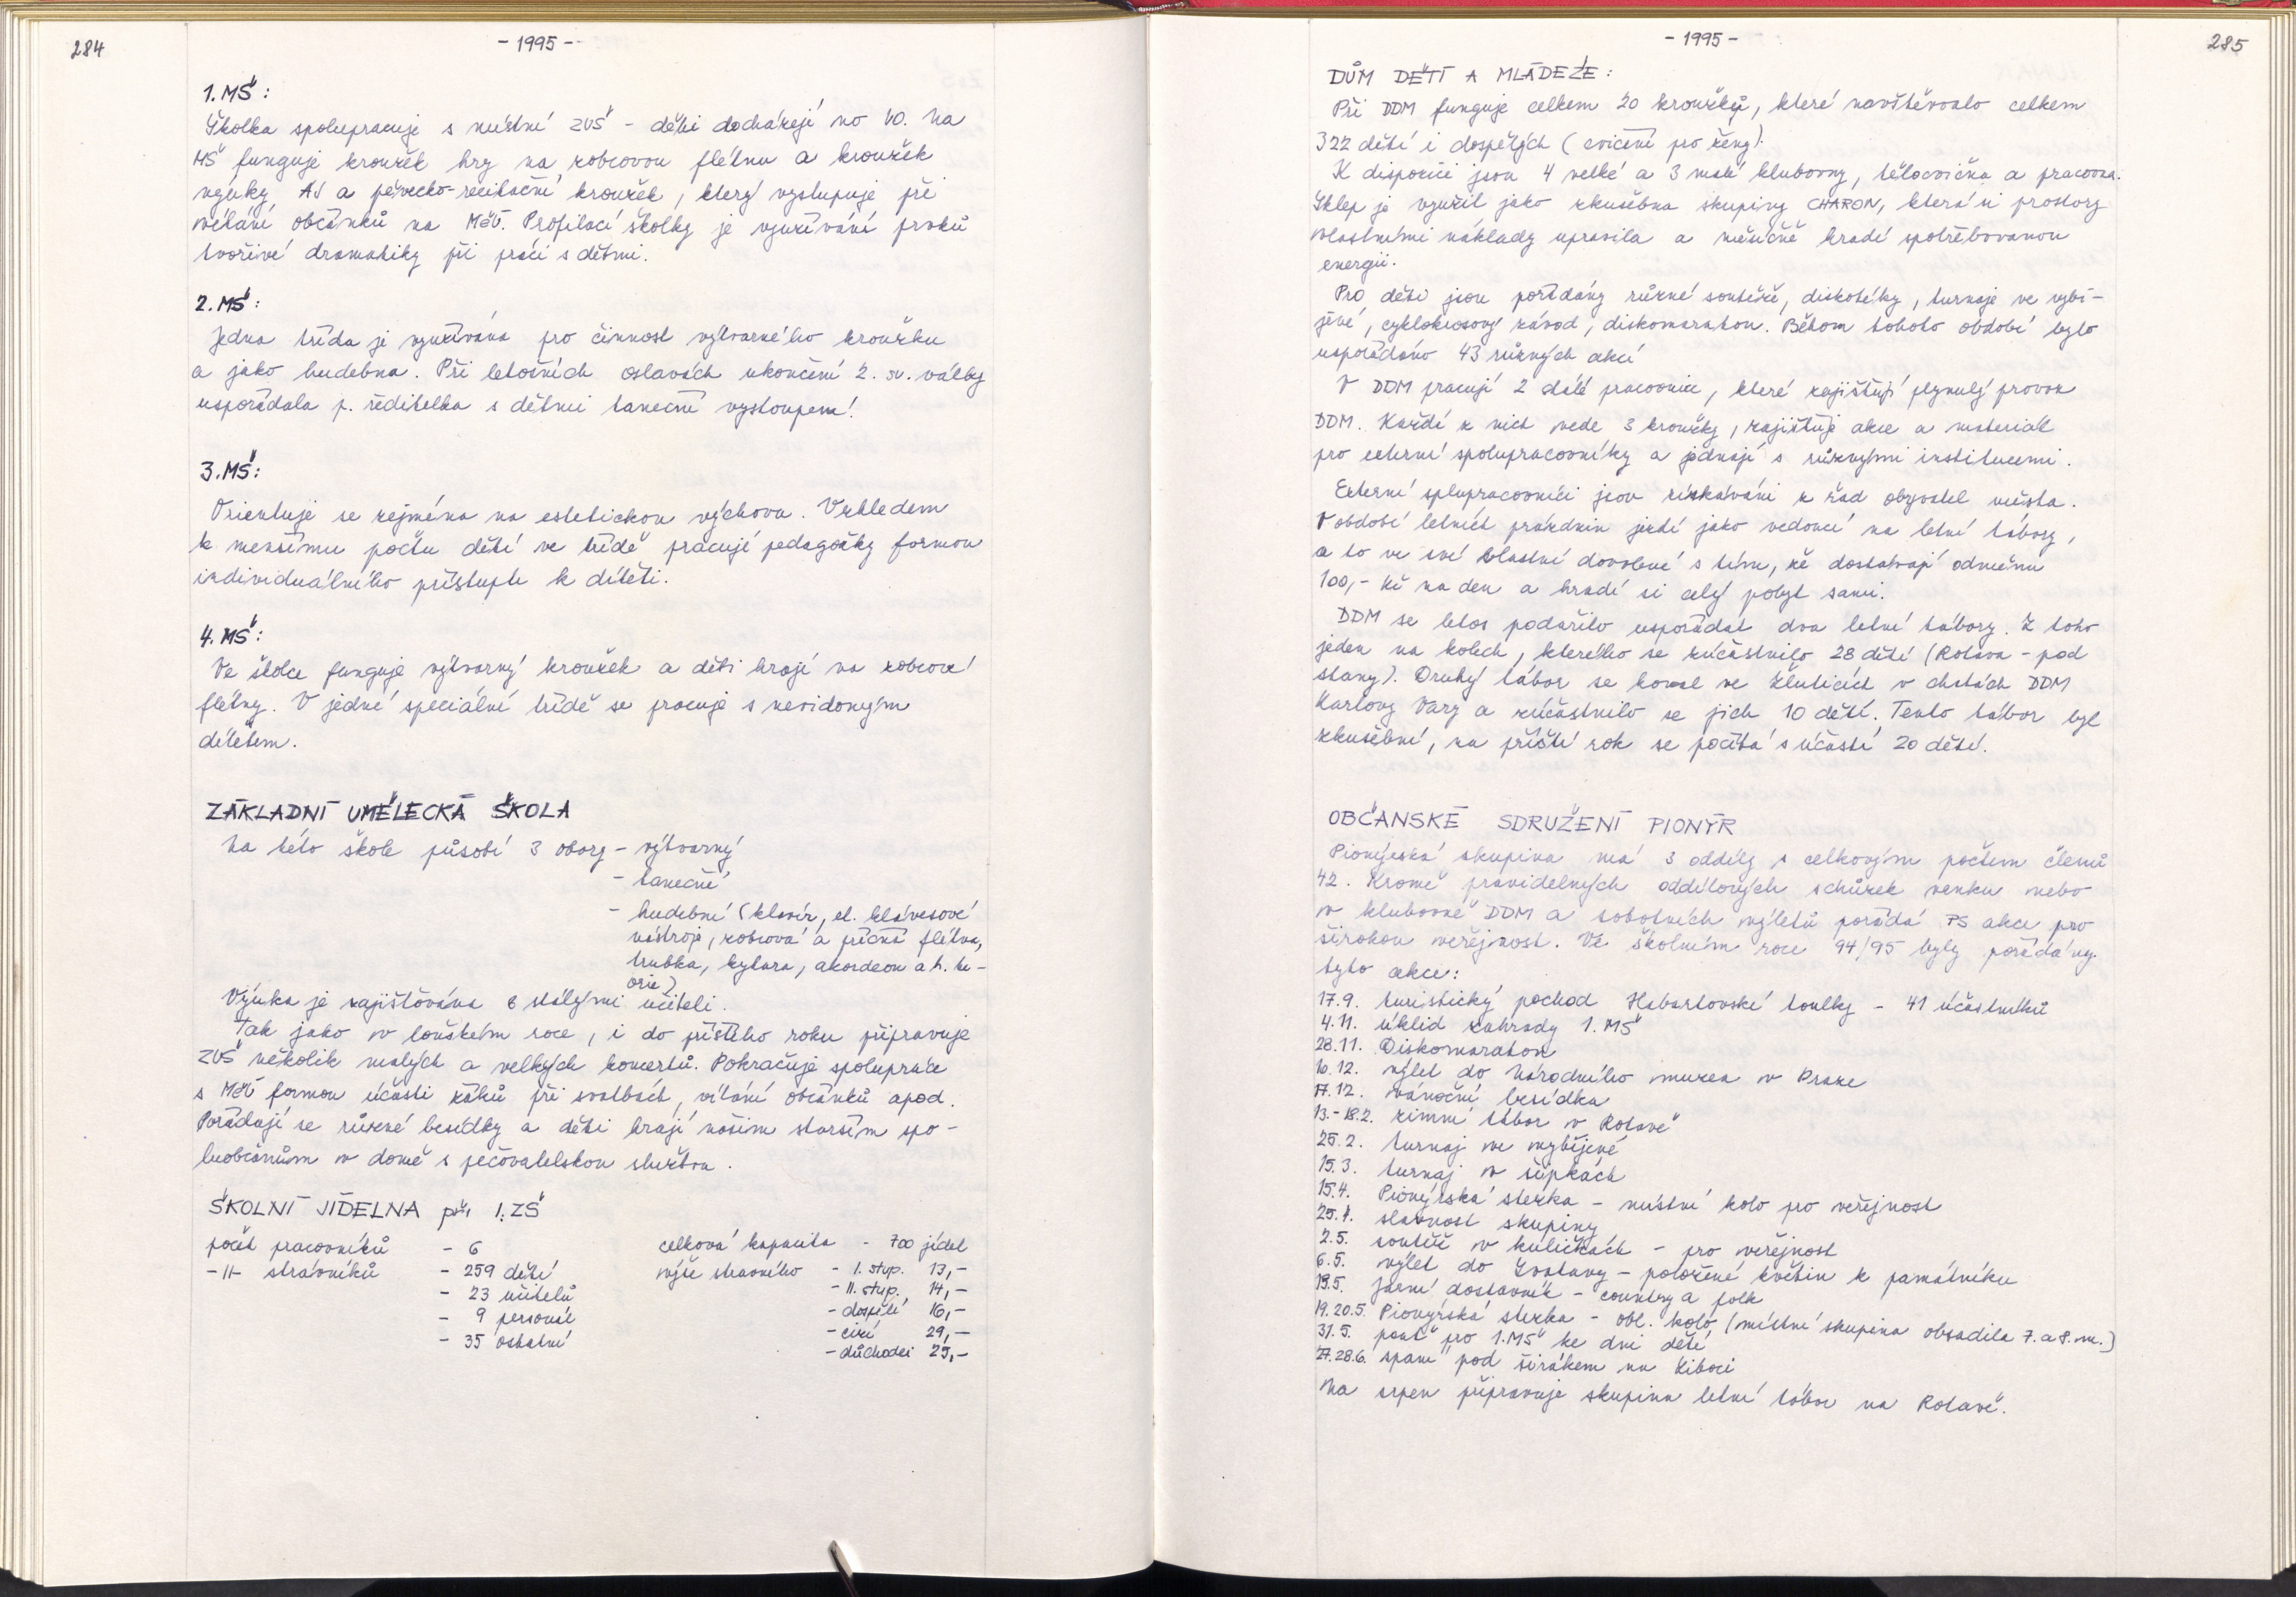 284
- 1995 -
1. MŠ:
Školka spolupracuje s místní ZUŠ - děti docházejí no VO. Na
MŠ funguje kroužek hry na zobcovou flétnu a kroužek
výuky AJ a pěvecko-recitační kroužek, který vystupuje při
vítání občánků na MěÚ. Profilací školky je využívání prvků
tvořivé dramatiky při práci s dětmi.
2. MŠ:
Jedna třída je využívána pro činnost výtvarného kroužku
a jako hudebna. Při letošních oslavách ukončení 2. sv. války
uspořádala p. ředitelka s dětmi taneční vystoupení.
3. MŠ:
Orientuje se zejména na estetickou výchovu. Vzhledem
k menšímu počtu dětí ve třídě pracují pedagožky formou
individuálního přístupu k dítěti.
4. MŠ:
Ve školce funguje výtvarný kroužek a děti hrají na zobcové
flétny. V jedné speciální třídě se pracuje s nevidomým
dítětem.
ZÁKLADNÍ UMĚLECKÁ ŠKOLA
Na této škole působí 3 obory - výtvarný
- taneční
- hudební (klavír, el. klávesové
nástroje, zobcová a příčná flétna,
trubka, kytara, akordeon a h. te-
orie)
Výuka je zajištována 6 stálými učiteli.
Tak jako v loňském roce, i do příštího roku připravuje
ZUŠ několik malých a velkých koncertů. Pokračuje spolupráce
s MěÚ formou účasti žáků při svatbách, vítání občánků apod.
Pořádají se různé besídky a děti hrají našim starším spo-
luobčanům v domě s pečovatelskou službou.
ŠKOLNÍ JÍDELNA při 1. ZŠ
počet pracovníků - 6 celková kapacita - 700 jídel
-II- strávníků - 259 dětí výše stravného - I. stup. 13,-
- 23 učitelů - II. stup. 14,-
- 9 personál - dospělí 16,-
- 35 ostatní - cizí 29,-
- důchodci 25,-
- 1995 -
285
DŮM DĚTÍ A MLÁDEŽE:
Při DDM funguje celkem 20 kroužků, které navštěvovalo celkem
322 dětí i dospělých (cvičení pro ženy).
K dispozici jsou 4 velké a 3 malé klubovny, tělocvična a pracovna.
Sklep je využit jako zkušebna skupiny CHARON, která si prostory
vlastními náklady upravila a měsíčně hradí spotřebovanou
energii.
Pro děti jsou pořádány různé soutěže, diskotéky, turnaje ve vybí-
jené, cyklokrosový závod, diskomaraton. Během tohoto období bylo
uspořádáno 43 různých akcí
V DDM pracují 2 stálé pracovnice, které zajištují plynulý provoz
DDM. Každá z nich vede 3 kroužky, zajištuje akce a materiál
pro externí spolupracovníky a jednají s různými institucemi.
Externí splupracovníci jsou získáváni z řad obyvatel města.
V období letních prázdnin jezdí jako vedoucí na letní tábory,
a to ve své vlastní dovolené s tím, že dostávají odměnu
100,- Kč na den a hradí si celý pobyt sami.
DDM se letos podařilo uspořádat dva letní tábory. Z toho
jeden na kolech, kterého se zúčastnilo 28 dětí (Rotava - pod
stany). Druhý tábor se konal ve Žluticích v chatách DDM
Karlovy Vary a zúčastnilo se jich 10 dětí. Tento tábor byl
zkušební, na příští rok se počítá s účastí 20 dětí.
OBČANSKÉ SDRUŽENÍ PIONÝR
Pionýrská skupina má 3 oddíly s celkovým počtem členů
42. Kromě pravidelných oddílových schůzek venku nebo
v klubovně DDM a sobotních výletů pořádá PS akce pro
širokou veřejnost. Ve školním roce 94/95 byly pořádány
tyto akce:
17.9. turistický pochod Habartovské toulky - 41 účastníků
4.11. úklid zahrady 1. MŠ
28.11. Diskomaraton
10.12. výlet do Národního muzea v Praze
17.12. vánoční besídka
13.-18.2. zimní tábor v Rotavě
25.2. turnaj ve vybíjené
15.3. turnaj v šipkách
15.4. Pionýrská stezka - místní kolo pro veřejnost
25.4. slavnost skupiny
2.5. soutěž v kuličkách - pro veřejnost
6.5. výlet do Svatavy - položení květin k památníku
13.5. Jarní dostavník - country a folk
19.20.5. Pionýrská stezka - obl. kolo (místní skupina obsadila 7. a 8. m.)
31.5. pout pro 1.MŠ ke dni dětí
27.28.6. spaní pod širákem na Liboci
Na srpen připravuje skupina letní tábor na Rotavě.